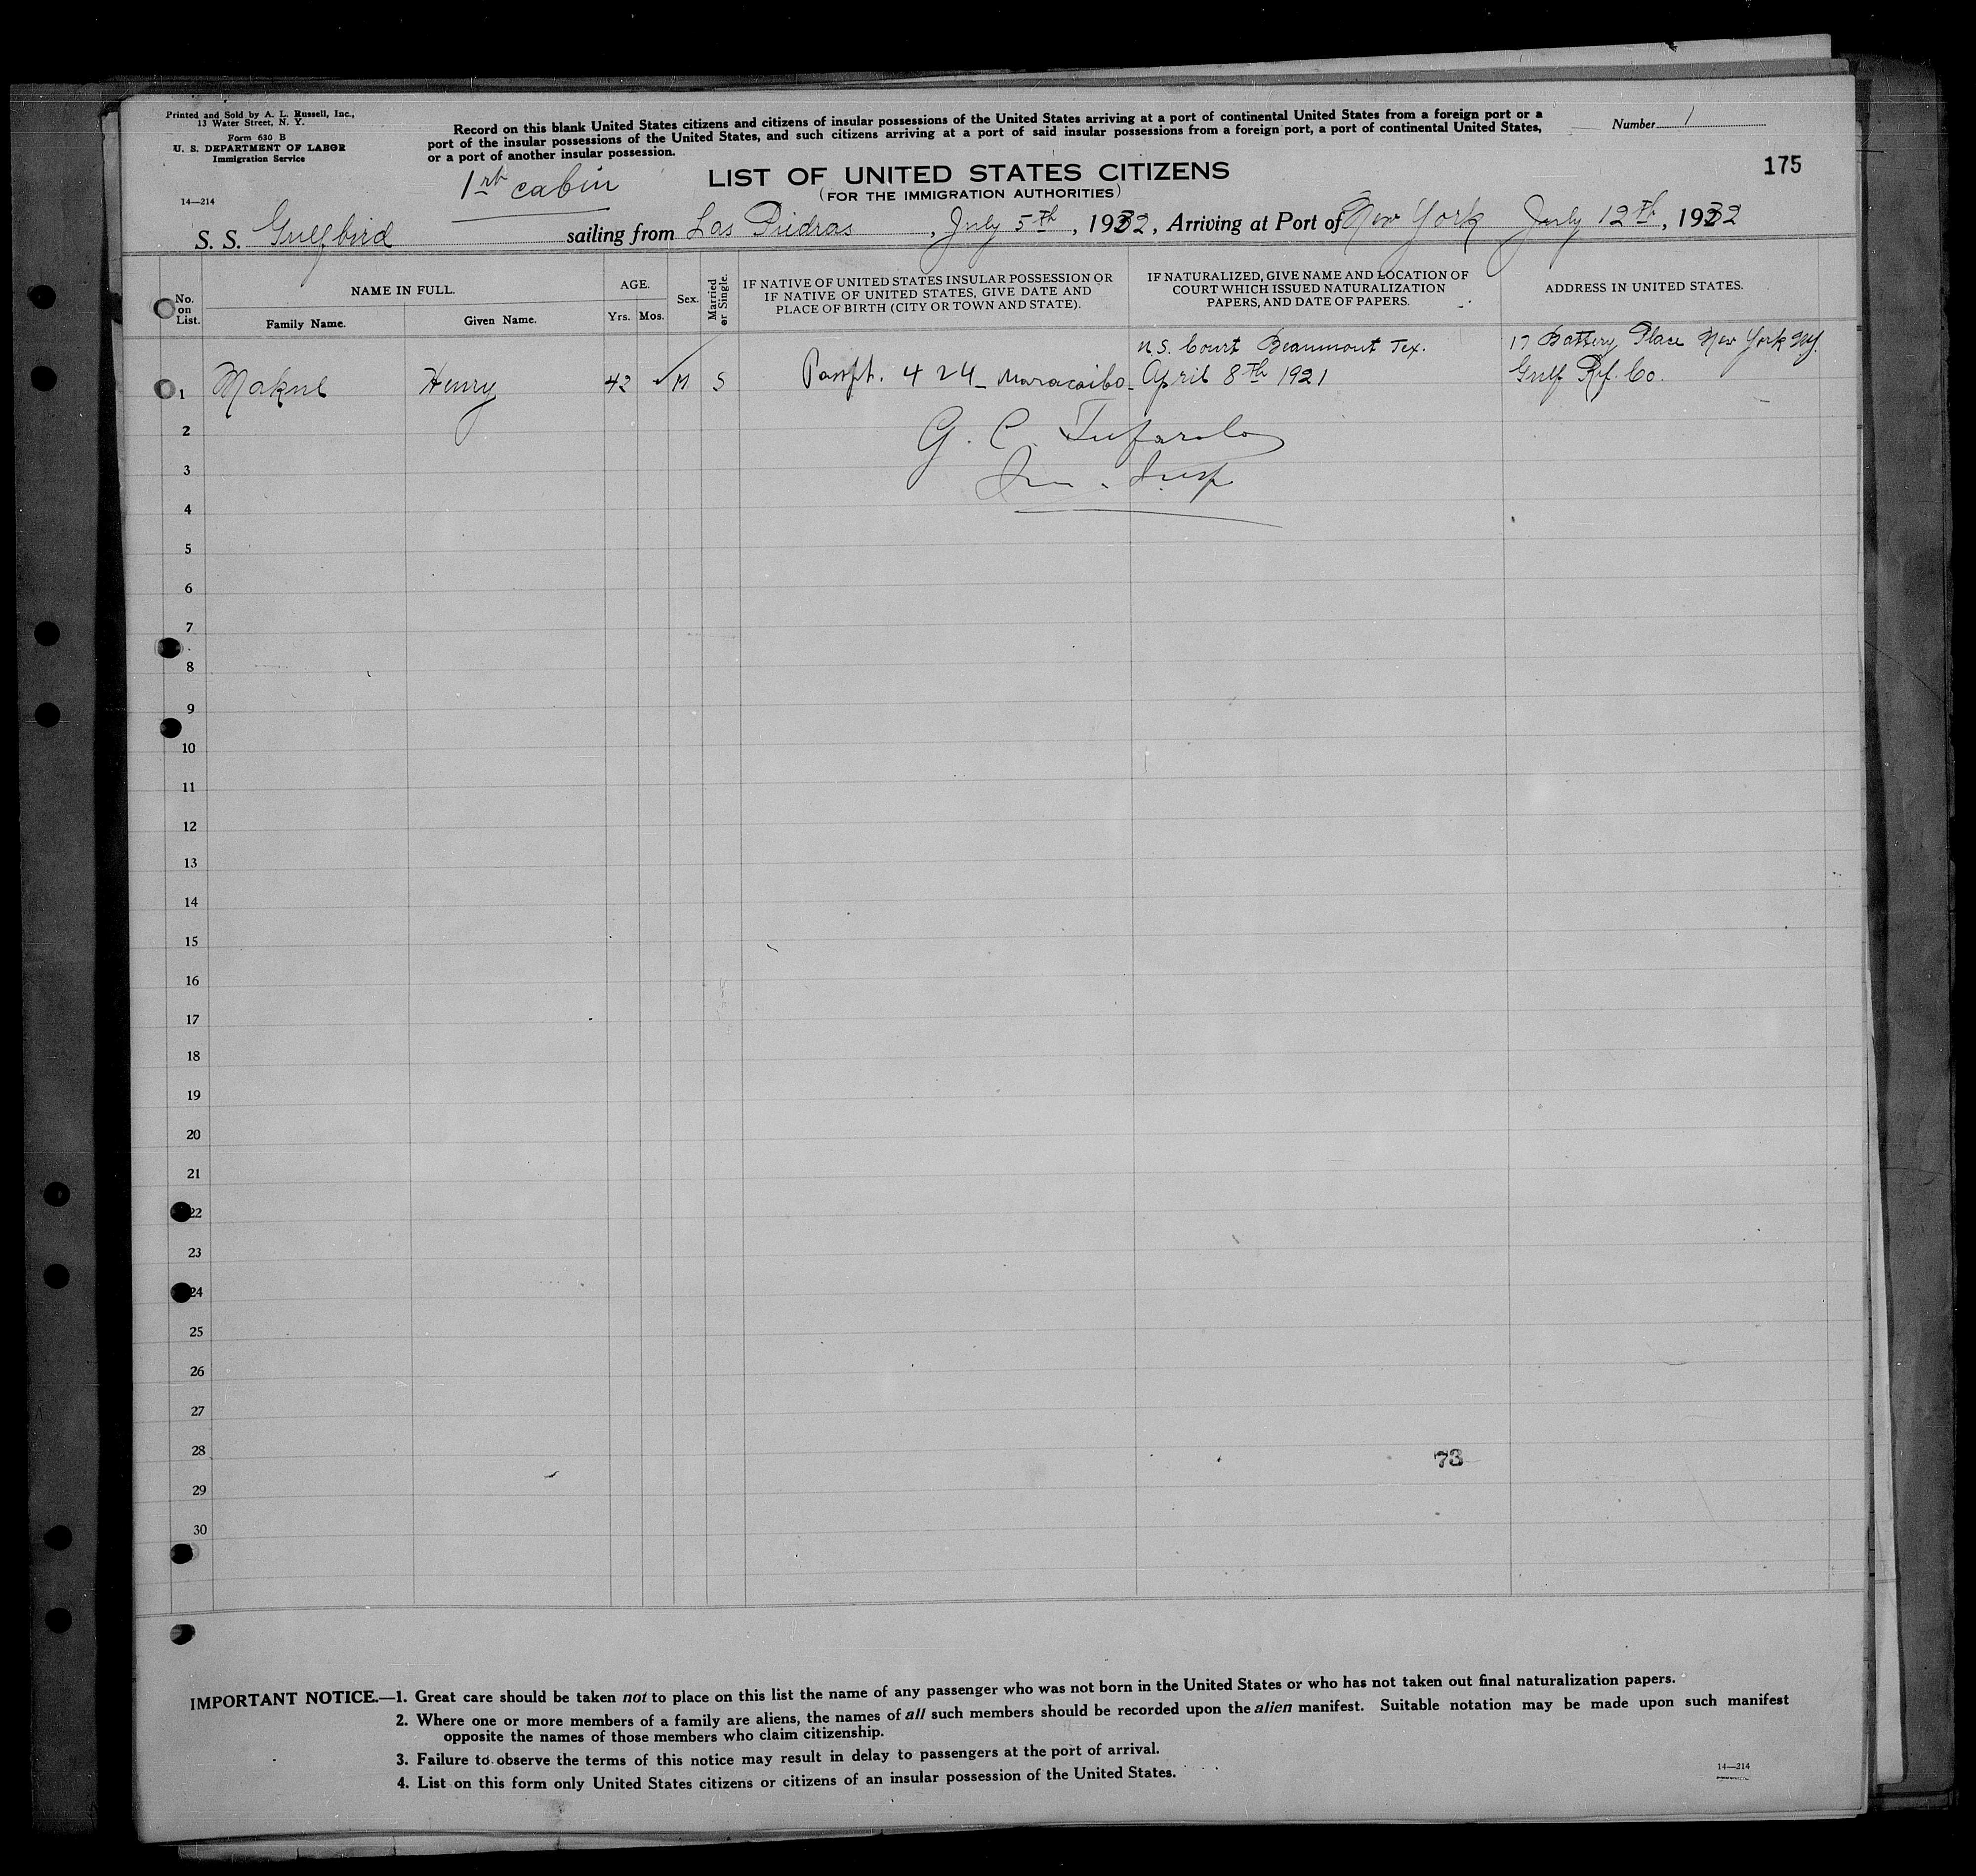 Printed and Sold by A. L. Russell, Inc.,
13 Water Street, N. Y.
Form 630 B
U. S. DEPARTMENT OF LABOR
Immigration Service
14—214
Record on this blank United States citizens and citizens of insular possessions of the United States arriving at a port of continental United States from a foreign port or a
port of the insular possessions of the United States, and such citizens arriving at a port of said insular possessions from a foreign port, a port of continental United States,
or a port of another insular possession.
Number 1
175
1st cabin
LIST OF UNITED STATES CITIZENS
(FOR THE IMMIGRATION AUTHORITIES)
S. S. Gulfbird sailing from Las Piedras, July 5th, 1932, Arriving at Port of New York July 12th, 1932
No. on List.
NAME IN FULL.
Family Name.
Given Name.
AGE.
Yrs.
Mos.
Sex.
Married or Single.
IF NATIVE OF UNITED STATES INSULAR POSSESSION OR
IF NATIVE OF UNITED STATES, GIVE DATE AND
PLACE OF BIRTH (CITY OR TOWN AND STATE).
IF NATURALIZED, GIVE NAME AND LOCATION OF
COURT WHICH ISSUED NATURALIZATION
PAPERS, AND DATE OF PAPERS.
ADDRESS IN UNITED STATES.
U.S. Court Beaumont Tex.
17 Battery Place New York NY.
1 Henry 42 M S Passpt. 424 - Maracaibo - April 8th 1921 Gulf Rf. Co.
2
G. C.
3
Im. Insp
4
5
6
7
8
9
10
11
12
13
14
15
16
17
18
19
20
21
22
23
24
25
26
27
28
73
29
30
IMPORTANT NOTICE.—1. Great care should be taken not to place on this list the name of any passenger who was not born in the United States or who has not taken out final naturalization papers.
2. Where one or more members of a family are aliens, the names of all such members should be recorded upon the alien manifest. Suitable notation may be made upon such manifest
opposite the names of those members who claim citizenship.
3. Failure to observe the terms of this notice may result in delay to passengers at the port of arrival.
4. List on this form only United States citizens or citizens of an insular possession of the United States.
14—214